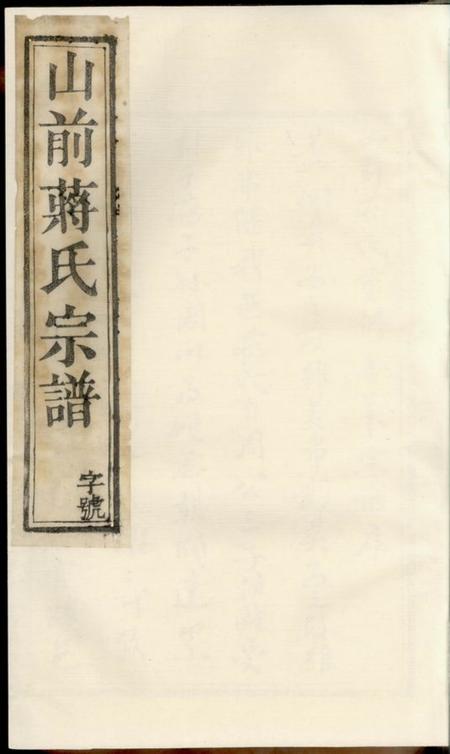 山前蔣氏宗譜
字號